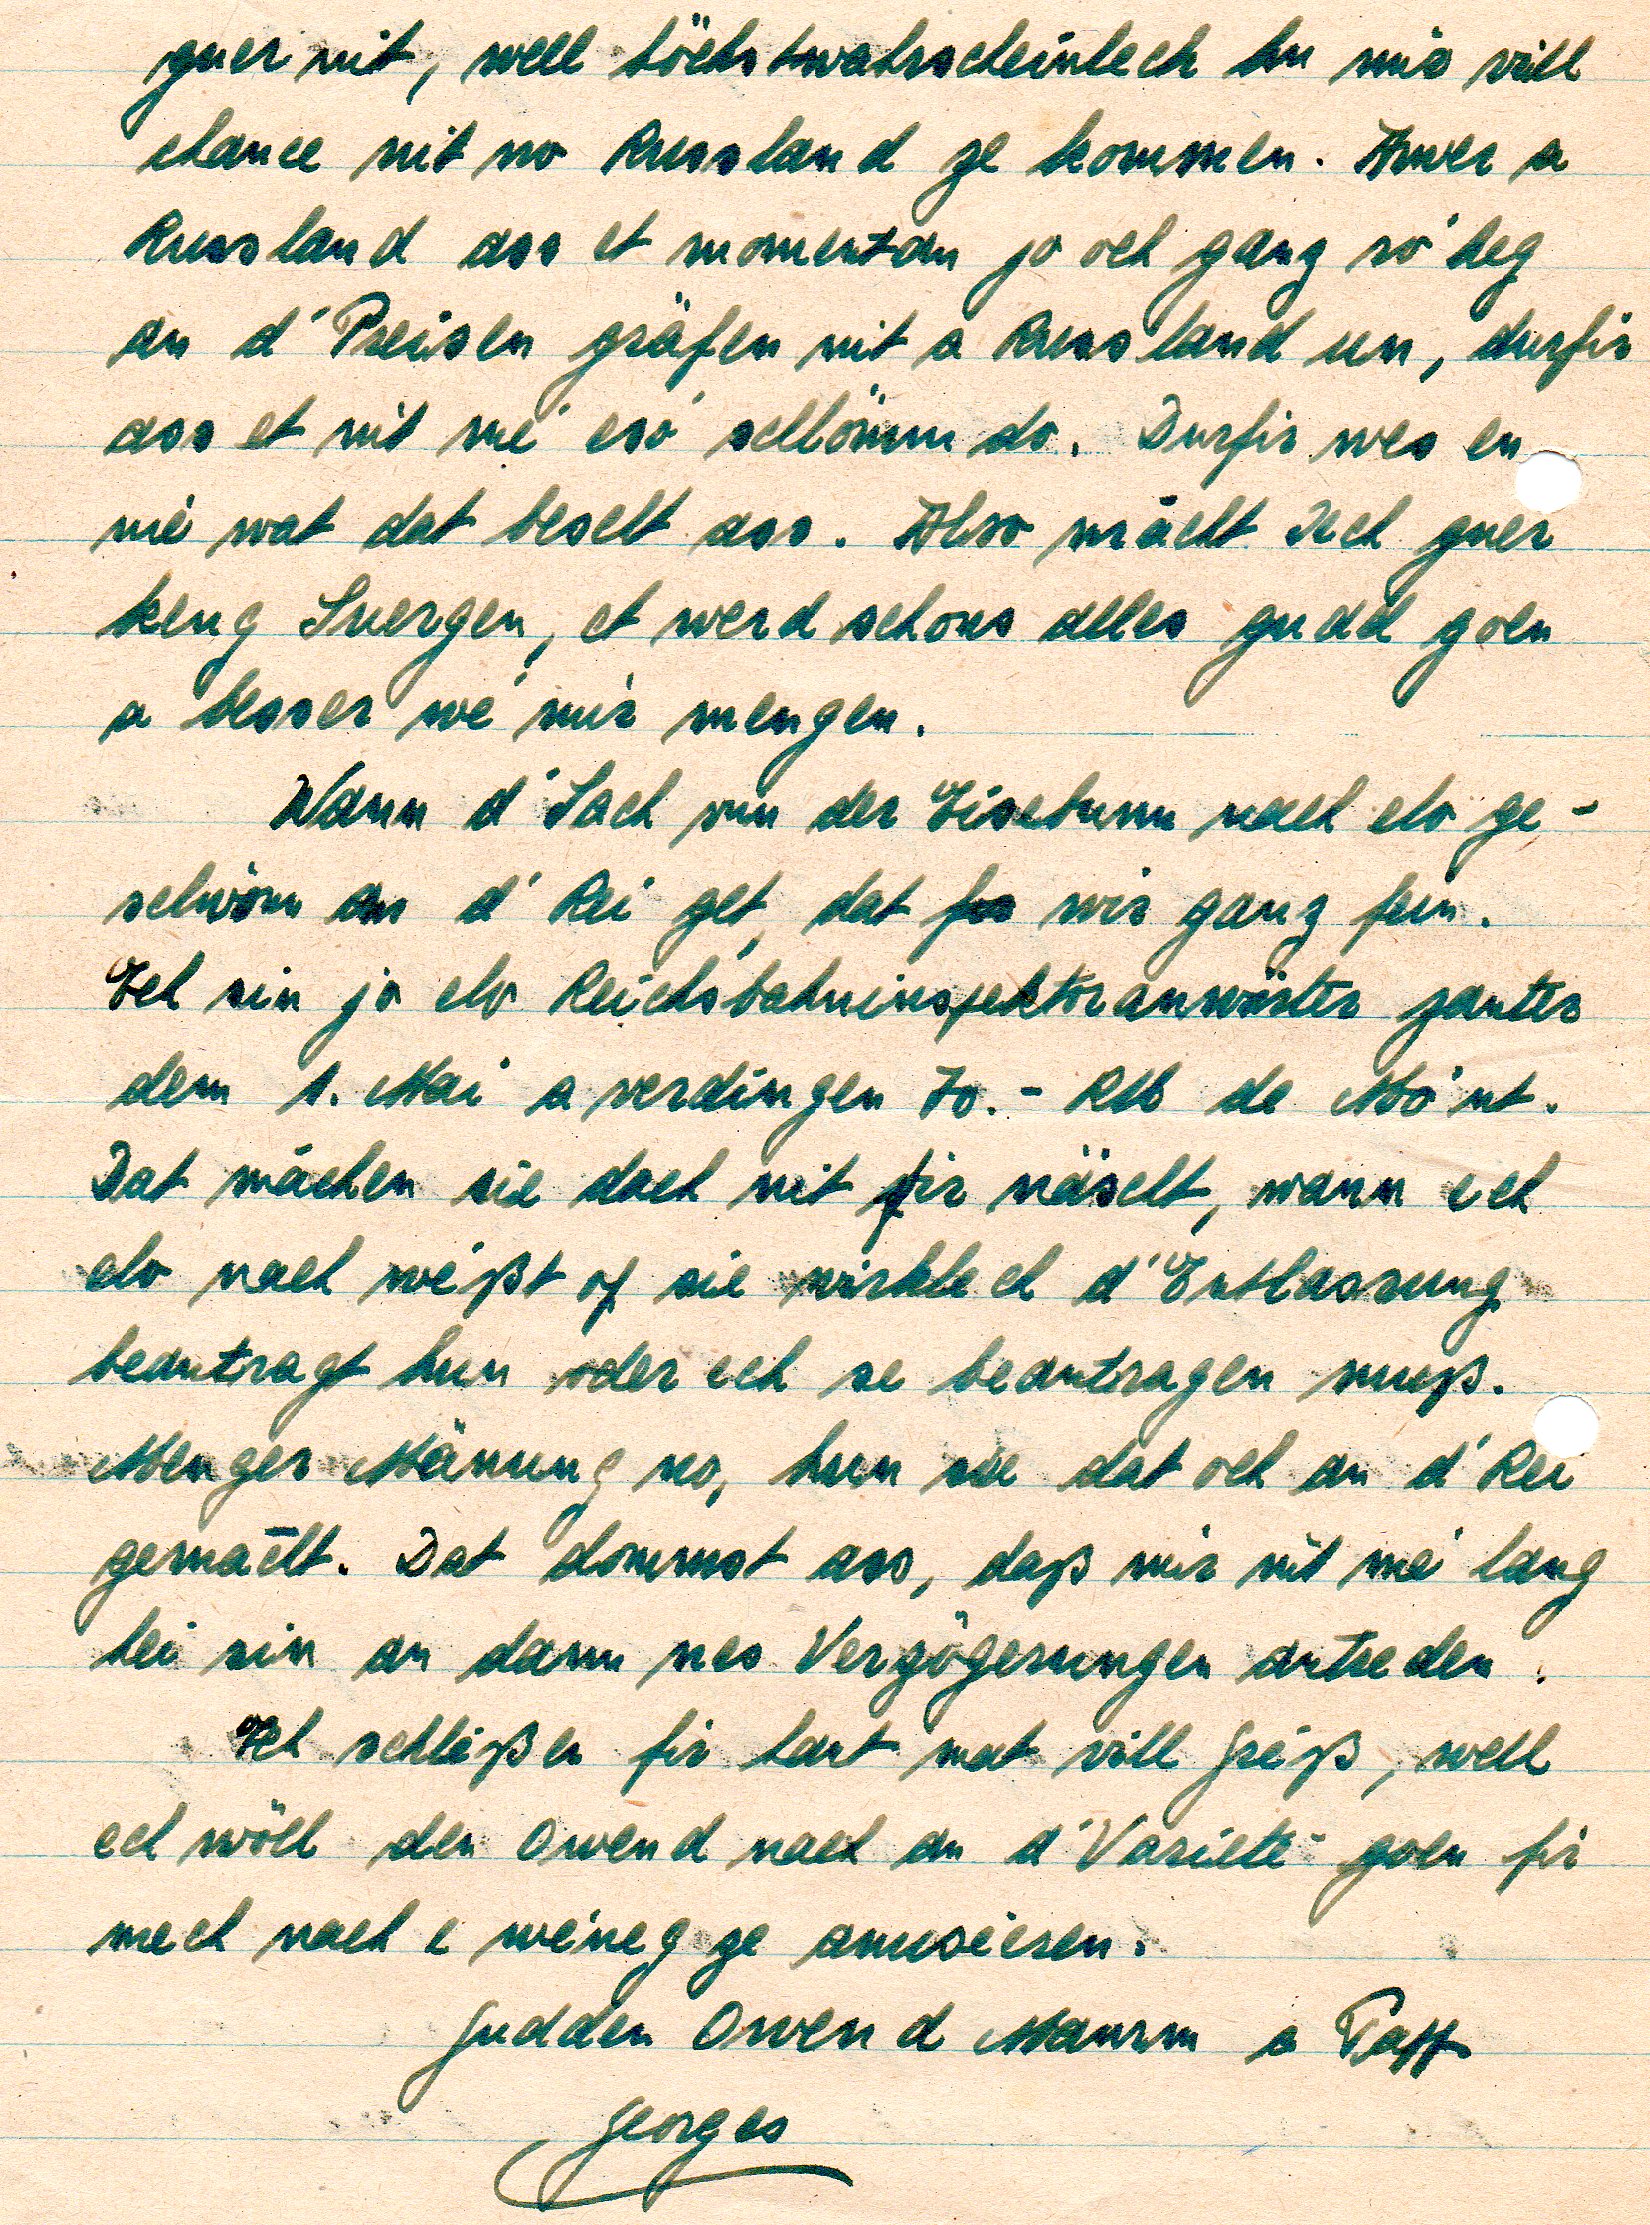 guer nit, well höchstwahrscheinlech hu mir vill
chance nit no Russland ze kommen. Awer a
Russland ass et momentan jo och ganz ro'heg
an d'Preisen gräfen nit a Russland un, durfir
ass et nit mé esó schlömm do. Durfir wes en
nié wat dat bescht ass. Also mácht Iech guer
keng Suergen, et werd schons alles gudd goen
a besser wé mir mengen.
Wann d'Sach vun der Eisebunn nach elo ge-
schwönn an d'Rei get, dat wir ganz fein.
Ech sin jo elo Reichsbahninspektoranwärter zanter
dem 1. Mai a verdingen 70.- RM de Mo'nt.
Dat máchen sie dach nit fir näischt, wann ech
elo nach wéißt of sie wirklech d'Entlassung
beantragt hun oder ech se beantragen muß.
Menger Mänung no, hun se dat och an d'Rei
gemácht. Dat dommst ass, daß mir nit méi lang
hei sin an dann nes Verzögerungen antreden.
Ech schléißen fir haut mat vill Gréiß, well
ech wöll den Owend nach an d'Varieté goen fir
mech nach e wéineg ze amuséieren.
Gudden Owend Mamm a Papp
Georges